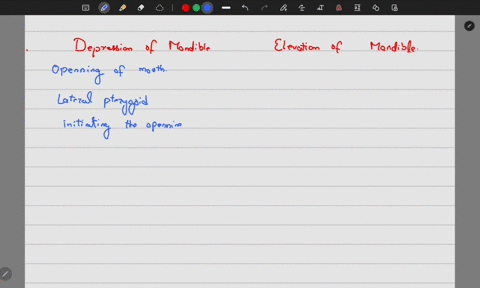 Depression of Mandible
Elevation of Mandible.
Openning of mouth.
Lateral pterygoid
initiating the openning